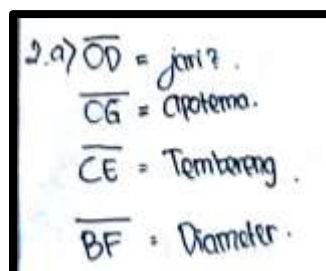 2.a) OD = jari².
CG = apotema.
CE = Tembereng.
BF = Diameter.